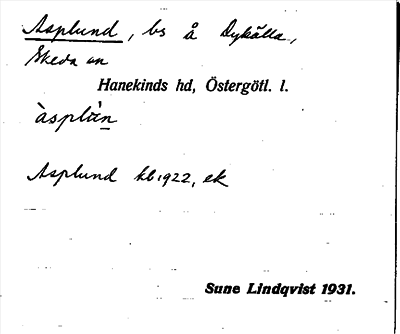 Asplund, bs å Dykälla,
Skeda sn
Hanekinds hd, Östergötl. l.
àsplùn
Asplund kb 1922, ek
Sune Lindqvist 1931.